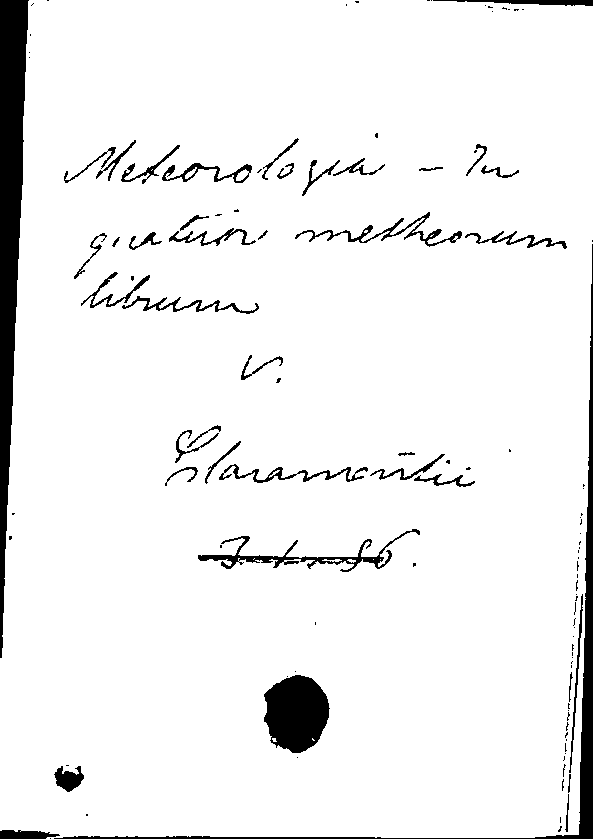 Meteorologia – In
quatuor metheorum
librum
v.
Claramontii